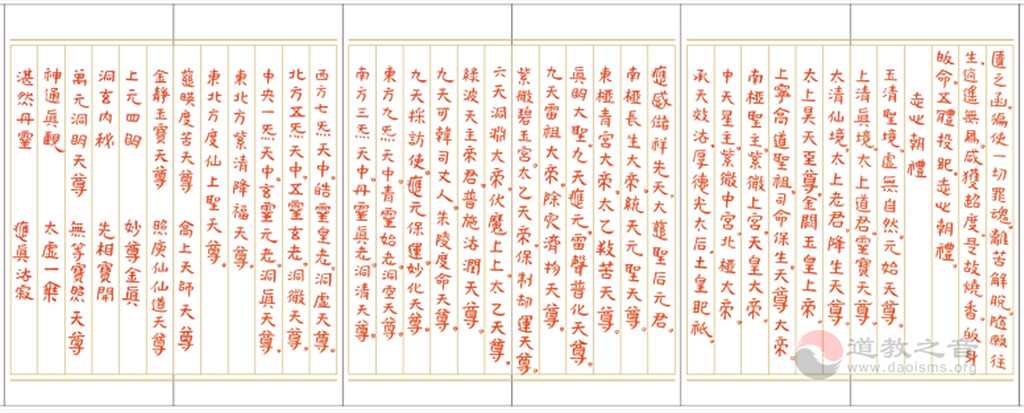 匱之函。徧使一切罪魂。離苦解脫。隨願往
生逍遙。無為咸獲超度。是故燒香。皈身
皈命。五體投地。志心朝禮。
志心朝禮
玉清聖境。虛無自然。元始天尊。
上清真境。太上道君。靈寶天尊。
太清仙境。太上老君。降生天尊。
太上昊天至尊。金闕玉皇上帝。
上寧高道聖祖。司命保生天尊大帝
南極聖主。紫微上宮。天皇大帝。
中天星主。紫微中宮。北極大帝。
承天效法。厚德光大。后土皇地祇。
應感儲祥。先天大聖后元君。
南極長生大帝。統天元聖天尊。
東極青宮大帝。太乙救苦天尊。
真明大聖。九天應元雷聲普化天尊。
九天雷祖大帝。除灾濟物天尊。
紫微碧玉宮。太乙天帝。保制劫運天尊。
六天洞淵大帝。伏魔上上。太乙天尊。
波天主帝君。普施沾潤天尊。
九天可韓司丈人。朱陵度命天尊。
九天採訪使。應元保運妙化天尊。
東方九炁天中。青靈始老。洞空天尊。
南方三炁天中。丹靈真老。洞清天尊。
西方七炁天中。皓靈皇老。洞虛天尊。
北方五炁天中。五靈玄老。洞微天尊。
中央一炁天中。玄靈元老。洞真天尊。
東北方紫清降福天尊。
東北方度仙上聖天尊。
映度苦天尊 高上天師天尊
金靜玉寶天尊 照仙仙道天尊
上元四明 妙尊金真
洞玄內秘 先相寶開
萬元洞明天尊 無等寶照天尊
神通真觀 太虛一
湛然丹靈 應真沾寂
道教之音
www.daoisms.org